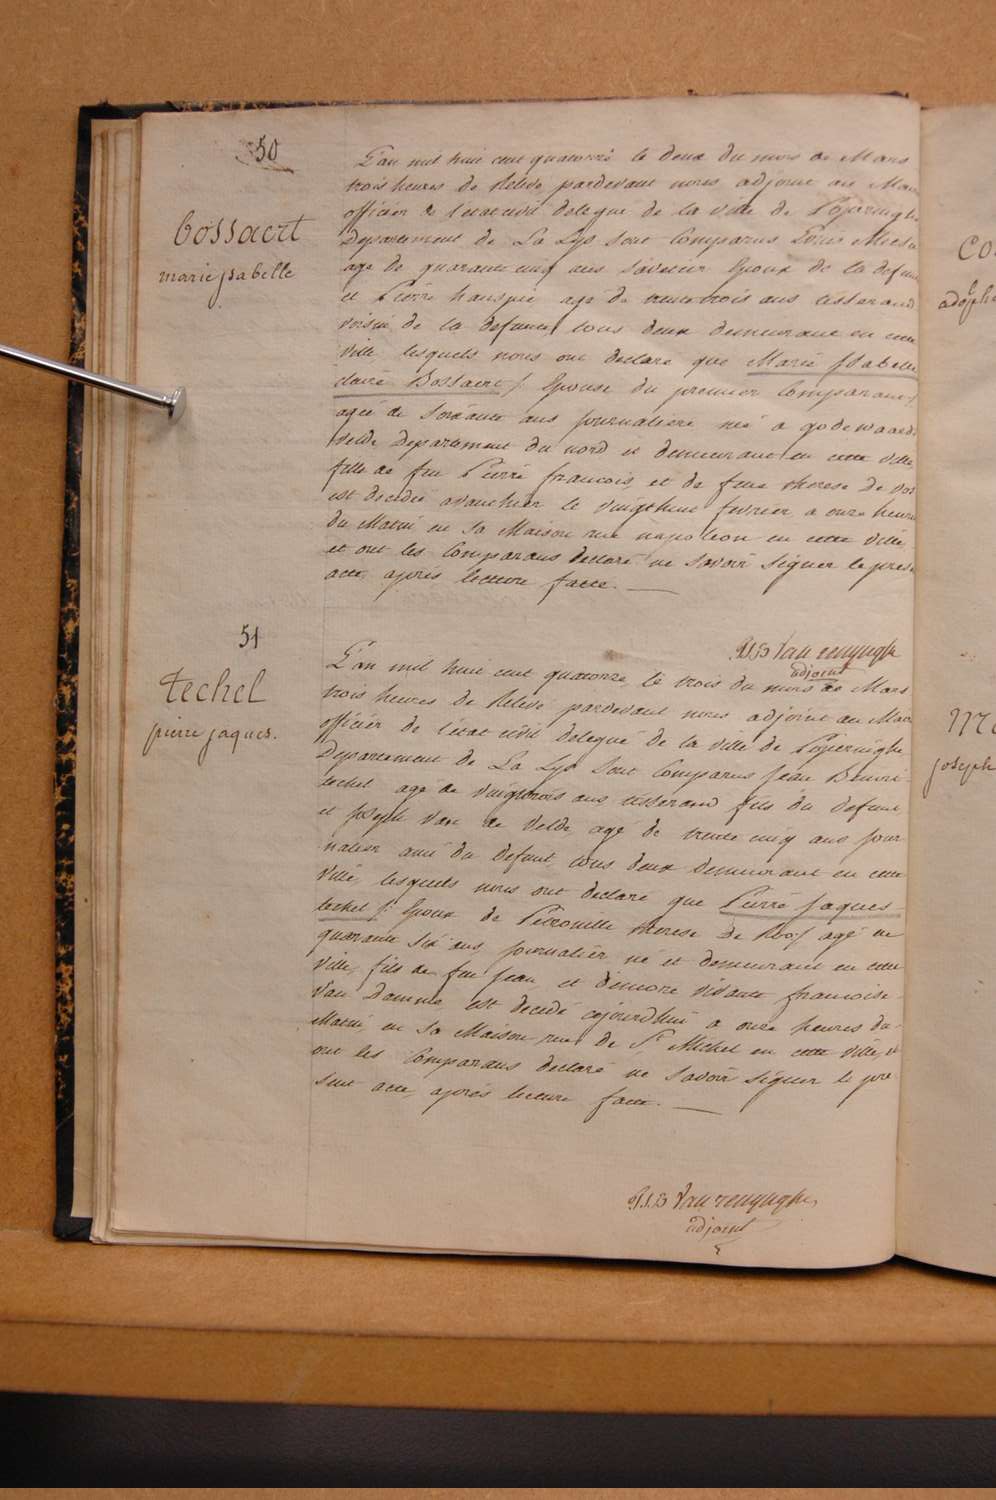 50
bossaert
marie jsabelle
L'an mil huit cent quatorze le deux du mois de Mars
trois heures de Relevé, pardevant nous adjoint au Mair
officier de l'état civil delegué de la ville de Popéringhe
Departement de La Lys sont Comparus Louis
agé de quarante cinq ans Epoux de la defun
et Pierre hanspié agé de trente trois ans tisserand
voisin de la defunte, tous deux demeurant en cette
ville, lesquels nous ont declaré que Marie Jsabelle
claire Bossaert /: Epouse du premier Comparant /
agée de soixante ans journaliere née a godewaers
velde Departement du nord et demeurant en cette ville,
fille de feu Pierre francois, et de feue therese De vos
est decedée avanthier le vingthuit fevrier, a onze heures
du Matin en sa Maison rue napoleon en cette ville,
et ont les Comparans declaré ne savoir signer le prese
acte, après lecture faite.
P.J.B Van renynghe
adjoint
51
techel
pierre jaques.
L'an mil huit cent quatorze, le trois du mois de Mars
trois heures de Relevé pardevant nous adjoint au Mair
officier de l'état civil delegué de la ville de Popéringhe
Departement de La Lys sont Comparus Jean Benoit
techel agé de vingttrois ans tisserand fils du defunt,
et Joseph Van de Velde, agé de trente cinq ans jour
nalier ami du defunt, tous deux demeurant en cette
ville, lesquels nous ont declaré que Pierre Jaques
techel /: Epoux de Petronille therese De Roo :/ agé de
quarante six ans, journalier né et demeurant en cette
ville, fils de feu Jean, et d'encore vivante francoise
Van Damme est decedé cejourd'hui a onze heures du
Matin, en sa Maison rue de St Michel en cette ville, et
ont les Comparans declaré ne savoir signer le pre
sent acte, après lecture faite.
P.J.B Van renynghe
adjoint
CO
adolphe
joseph